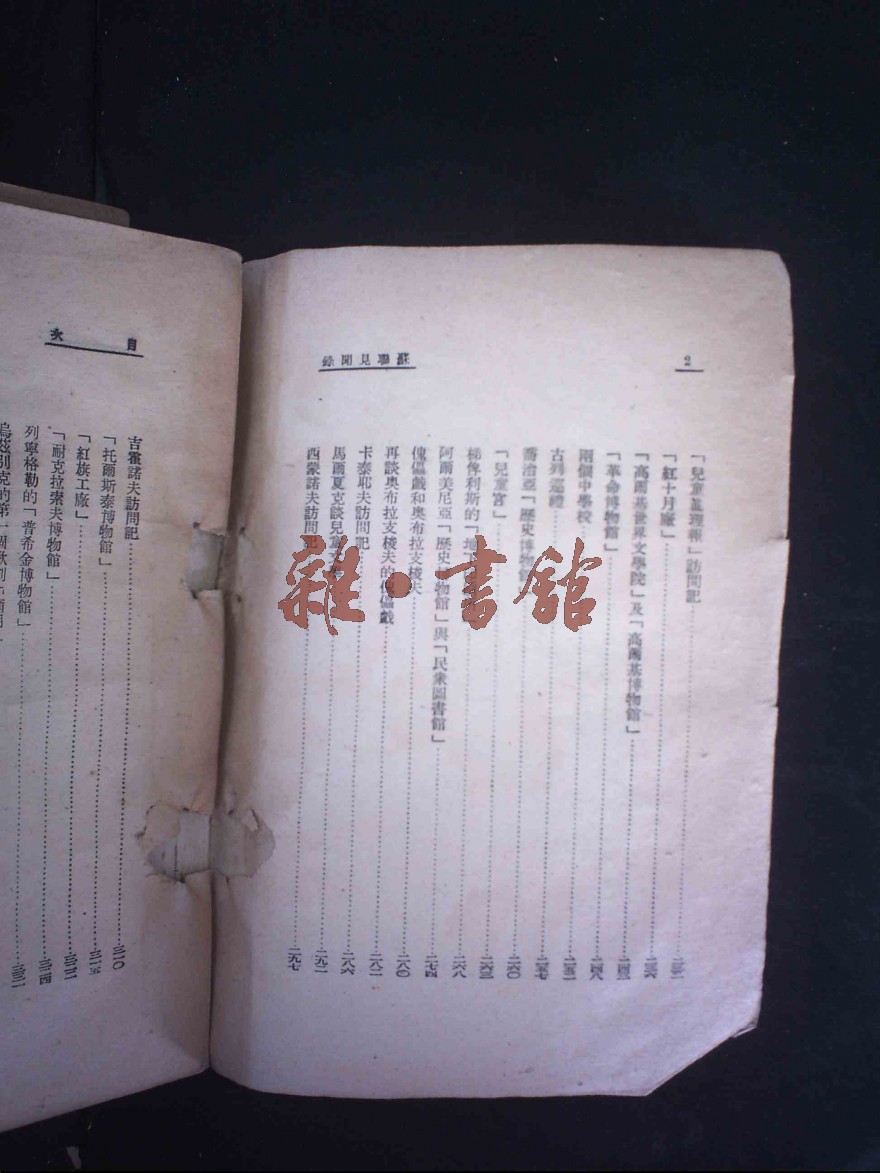 2
蘇聯見聞錄
「兒童真理報」訪問記
「紅十月廠」……二三六
「高爾基世界文學院」及「高爾基博物館」……二四三
「革命博物館」……二四八
兩個中學校……二五二
古列巡禮……二五七
喬治亞「歷史博物館」……二六〇
「兒童宮」……二六三
梯俾利斯的「地下……二六八
阿爾美尼亞「歷史博物館」與「民衆圖書館」……二七四
傀儡戲和奧布拉支梭夫……二八〇
再談奧布拉支梭夫的傀儡戲……二八二
卡泰耶夫訪問記……二八六
馬爾夏克談兒童文學……二九二
西蒙諾夫訪問記……二九七
目次
吉霍諾夫訪問記……三一〇
「托爾斯泰博物館」……三一五
「紅旗工廠」……三二二
「耐克拉索夫博物館」……三二四
列寧格勒的「普希金博物館」……三三二
烏茲別克的第一個歌劇
雜·書館